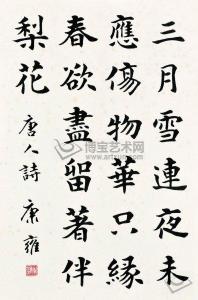 三月雪連夜未
應傷物華只緣
春欲盡留著伴
梨花
唐人詩 康雍
博宝艺术网